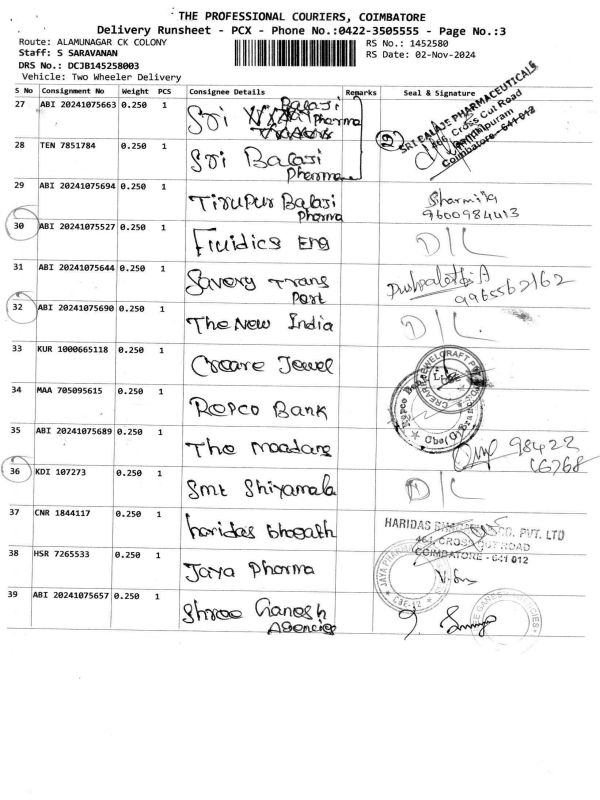 THE PROFESSIONAL COURIERS, COIMBATORE
Delivery Runsheet - PCX - Phone No.:0422-3505555 - Page No.:3
Route: ALAMUNAGAR CK COLONY RS No.: 1452580
Staff: S SARAVANAN RS Date: 02-Nov-2024
DRS No.: DCJB145258003
Vehicle: Two Wheeler Delivery
S No Consignment No Weight PCS Consignee Details Remarks Seal & Signature
27 ABI 20241075663 0.250 1 Sri Balaji Pharma
SRI BALAJE PHARMACEUTICALS
466 Cross Cut Road
Coimbatore - 641 012
2
28 TEN 7851784 0.250 1 Sri Balaji
Pharma
29 ABI 20241075694 0.250 1 Tirupur Balaji
Pharma
Sharmila
9600984413
30 ABI 20241075527 0.250 1 Fluidics Eng D/L
31 ABI 20241075644 0.250 1 Savery Trans
Port
9965562162
32 ABI 20241075690 0.250 1 The New India D/L
33 KUR 1000665118 0.250 1 Creare Jewel
34 MAA 705095615 0.250 1 Repco Bank
Repco Bank
35 ABI 20241075689 0.250 1 The
98422
16768
36 KDI 107273 0.250 1 Smt Shiyamala D/L
37 CNR 1844117 0.250 1 haridas bhagath
HARIDAS CO. PVT. LTD
464, CROSS CUT ROAD
COIMBATORE - 641 012
38 HSR 7265533 0.250 1 Jaya Pharma
JAYA
CBE-12
39 ABI 20241075657 0.250 1 Shree Ganesh
Agencies
GANESH AGENCIES